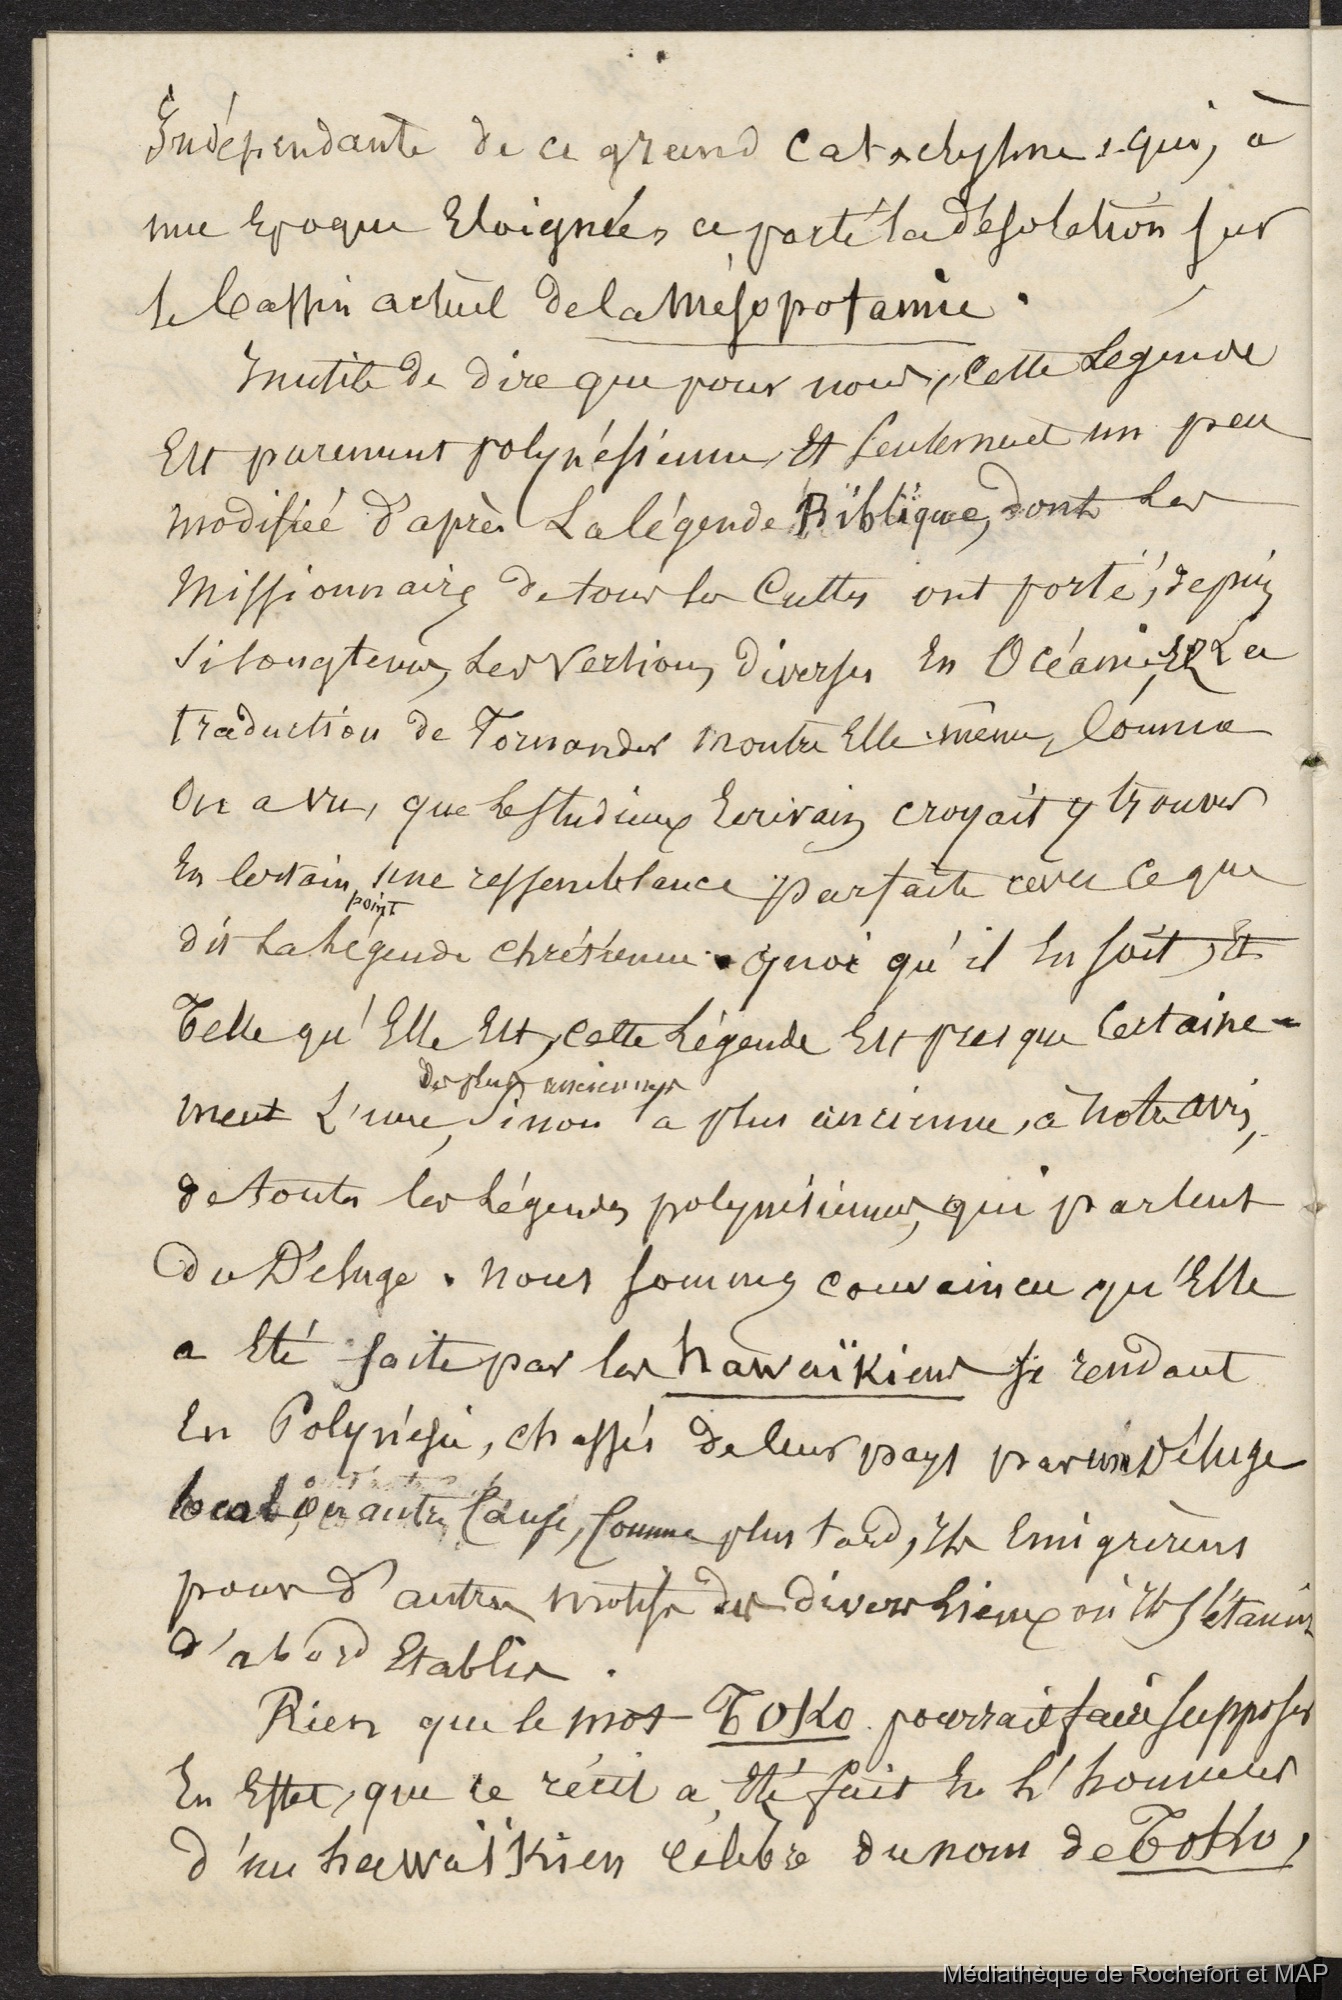 Indépendante de ce grand cataclysme qui, à
une Epoque Eloignée, a porté la désolation sur
le bassin actuel de la Mésopotamie.
Inutile de dire que pour nous, cette Légende
Est purement polynésienne, Et seulement un peu
modifiée d'après La légende Biblique, dont Les
Missionnaires de tous les Cultes ont porté, depuis
si longtems, Les Versions diverses En Océanie, La
traduction de Fornander montre Elle-même, Comme
On a vu, que le studieux Ecrivain croyait y trouver
En Certain point une ressemblance parfaite avec Ce que
dit La Légende chrétienne. quoi qu'il En soit, Et
Telle qu'Elle Est, cette Légende Est presque Certaine-
ment L'une des plus anciennes, Sinon la plus ancienne, à notre avis,
de toutes les Légendes polynésiennes, qui parlent
du Déluge. nous sommes convaincu qu'Elle
a Eté faite par les hawaïkiens se rendant
En Polynésie, chassés de leur pays par un Déluge
local, ou autre Cause, Comme plus tard, Ils Emigrèrent
pour d'autres motifs des divers Lieux où Ils s'étaient
d'abord Etablis.
Rien que le mot Toko pourrait faire supposer
En Effet, que ce récit a Eté fait En L'honneur
d'un hawaïkien célèbre du nom de Toko,
Médiathèque de Rochefort et MAP